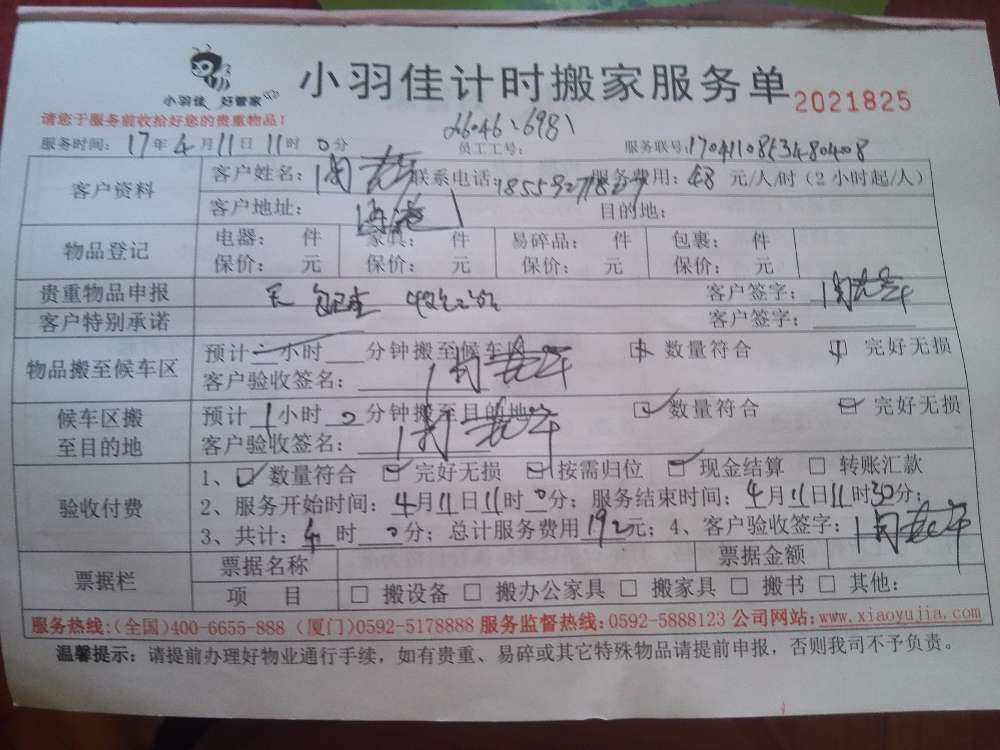 小羽佳 好管家
小羽佳计时搬家服务单
2021825
请您于服务前收拾好您的贵重物品!
服务时间: 17年4月11日11时0分 员工工号: 服务联号:
客户资料 客户姓名: 联系电话: 服务费用: 48 元/人/时(2小时起/人)
客户地址: 目的地:
物品登记 电器: 件 家具: 件 易碎品: 件 包裹: 件
保价: 元 保价: 元 保价: 元 保价: 元
贵重物品申报 客户签字:
客户特别承诺 客户签字:
物品搬至候车区 预计 小时 分钟搬至候车区 数量符合 完好无损
客户验收签名:
候车区搬至目的地 预计1小时0分钟搬至目的地 数量符合 完好无损
客户验收签名:
验收付费 1、数量符合 完好无损 按需归位 现金结算 转账汇款
2、服务开始时间: 4月11日11时0分; 服务结束时间: 4月11日11时30分;
3、共计: 4时0分; 总计服务费用192元; 4、客户验收签字:
票据栏 票据名称 票据金额
项目 搬设备 搬办公家具 搬家具 搬书 其他:
服务热线:(全国)400-6655-888 (厦门)0592-5178888 服务监督热线:0592-5888123 公司网站:www.xiaoyujia.com
温馨提示: 请提前办理好物业通行手续，如有贵重、易碎或其它特殊物品请提前申报，否则我司不予负责。